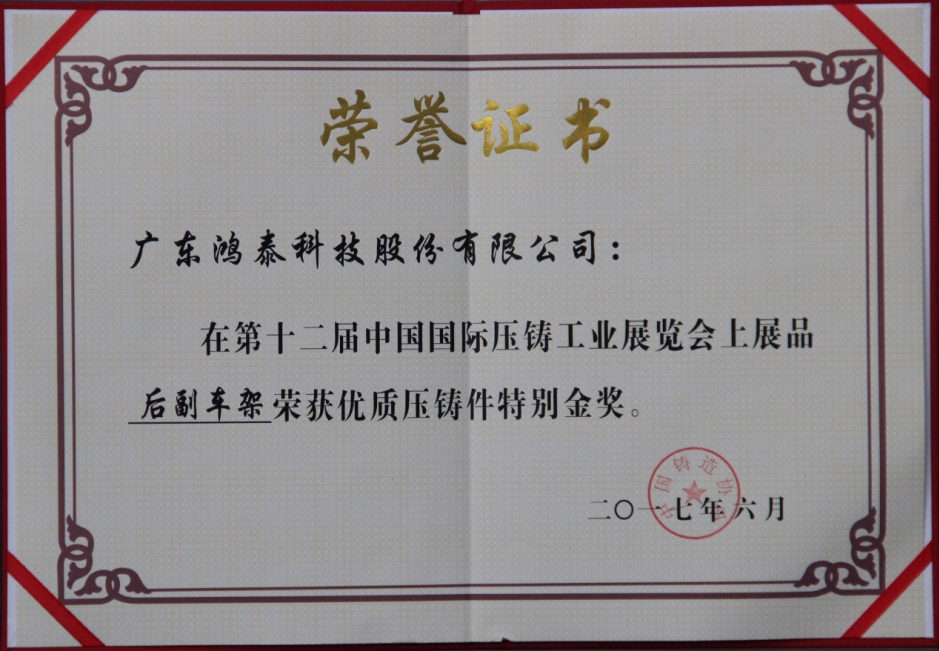 荣誉证书
广东鸿泰科技股份有限公司：
在第十二届中国国际压铸工业展览会上展品
后副车架荣获优质压铸件特别金奖。
中国铸造协会
二〇一七年六月